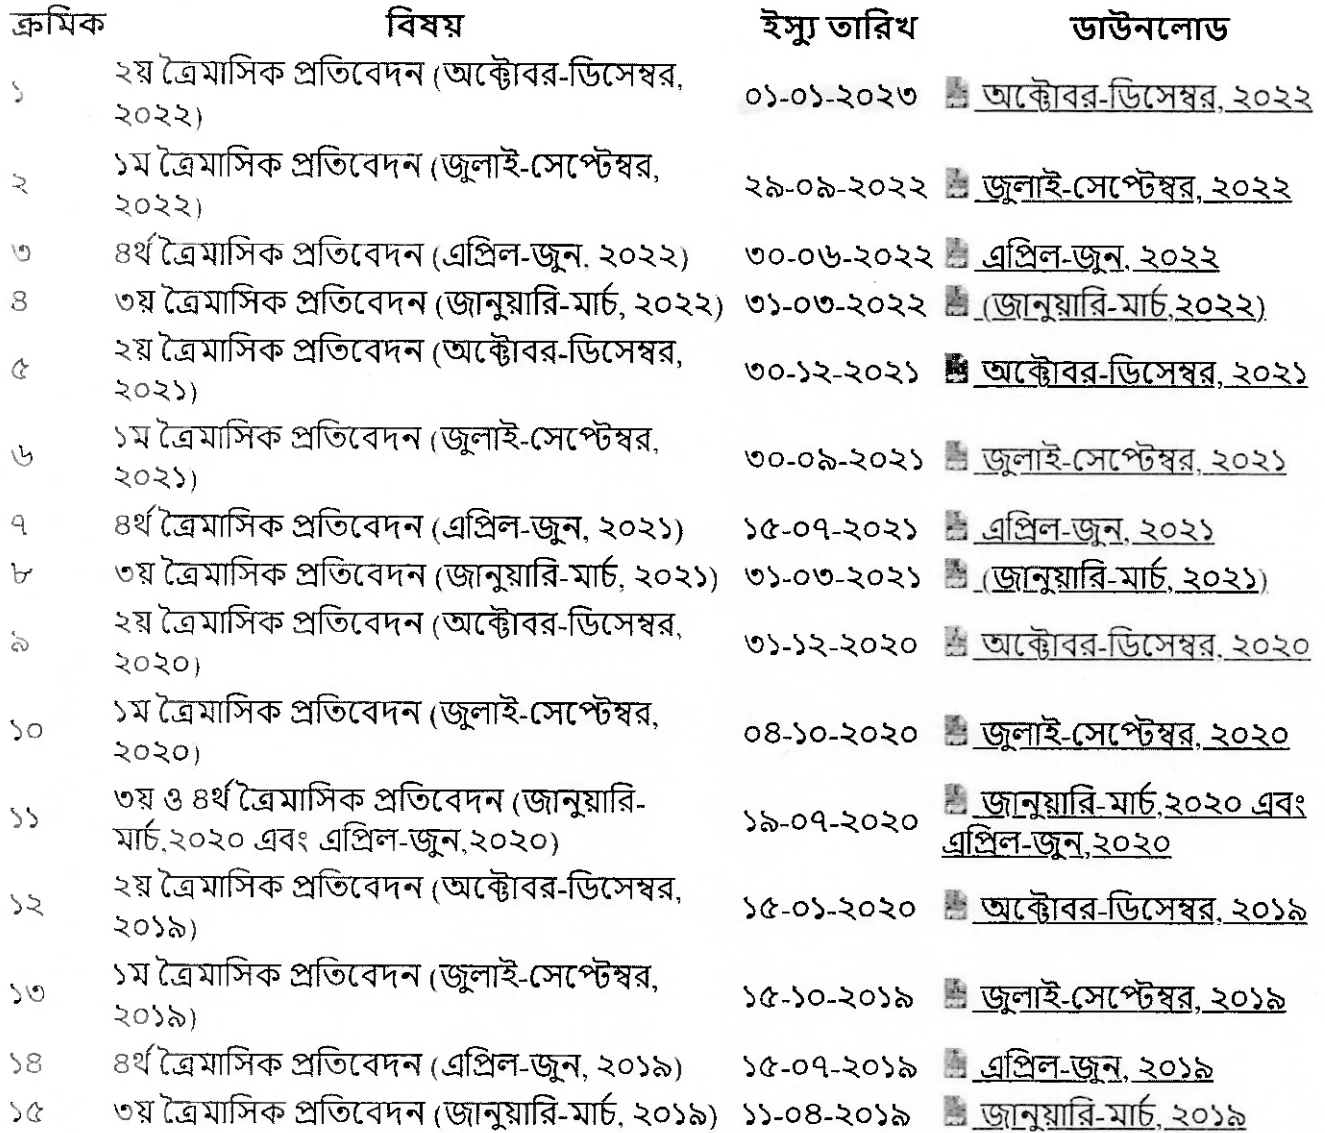 ক্রমিক বিষয় ইস্যু তারিখ ডাউনলোড
১ ২য় ত্রৈমাসিক প্রতিবেদন (অক্টোবর-ডিসেম্বর, ২০২২) ০১-০১-২০২৩ অক্টোবর-ডিসেম্বর, ২০২২
২ ১ম ত্রৈমাসিক প্রতিবেদন (জুলাই-সেপ্টেম্বর, ২০২২) ২৯-০৯-২০২২ জুলাই-সেপ্টেম্বর, ২০২২
৩ ৪র্থ ত্রৈমাসিক প্রতিবেদন (এপ্রিল-জুন, ২০২২) ৩০-০৬-২০২২ এপ্রিল-জুন, ২০২২
৪ ৩য় ত্রৈমাসিক প্রতিবেদন (জানুয়ারি-মার্চ, ২০২২) ৩১-০৩-২০২২ (জানুয়ারি-মার্চ,২০২২)
৫ ২য় ত্রৈমাসিক প্রতিবেদন (অক্টোবর-ডিসেম্বর, ২০২১) ৩০-১২-২০২১ অক্টোবর-ডিসেম্বর, ২০২১
৬ ১ম ত্রৈমাসিক প্রতিবেদন (জুলাই-সেপ্টেম্বর, ২০২১) ৩০-০৯-২০২১ জুলাই-সেপ্টেম্বর, ২০২১
৭ ৪র্থ ত্রৈমাসিক প্রতিবেদন (এপ্রিল-জুন, ২০২১) ১৫-০৭-২০২১ এপ্রিল-জুন, ২০২১
৮ ৩য় ত্রৈমাসিক প্রতিবেদন (জানুয়ারি-মার্চ, ২০২১) ৩১-০৩-২০২১ (জানুয়ারি-মার্চ, ২০২১)
৯ ২য় ত্রৈমাসিক প্রতিবেদন (অক্টোবর-ডিসেম্বর, ২০২০) ৩১-১২-২০২০ অক্টোবর-ডিসেম্বর, ২০২০
১০ ১ম ত্রৈমাসিক প্রতিবেদন (জুলাই-সেপ্টেম্বর, ২০২০) ০৪-১০-২০২০ জুলাই-সেপ্টেম্বর, ২০২০
১১ ৩য় ও ৪র্থ ত্রৈমাসিক প্রতিবেদন (জানুয়ারি-মার্চ,২০২০ এবং এপ্রিল-জুন,২০২০) ১৯-০৭-২০২০ জানুয়ারি-মার্চ,২০২০ এবং এপ্রিল-জুন,২০২০
১২ ২য় ত্রৈমাসিক প্রতিবেদন (অক্টোবর-ডিসেম্বর, ২০১৯) ১৫-০১-২০২০ অক্টোবর-ডিসেম্বর, ২০১৯
১৩ ১ম ত্রৈমাসিক প্রতিবেদন (জুলাই-সেপ্টেম্বর, ২০১৯) ১৫-১০-২০১৯ জুলাই-সেপ্টেম্বর, ২০১৯
১৪ ৪র্থ ত্রৈমাসিক প্রতিবেদন (এপ্রিল-জুন, ২০১৯) ১৫-০৭-২০১৯ এপ্রিল-জুন, ২০১৯
১৫ ৩য় ত্রৈমাসিক প্রতিবেদন (জানুয়ারি-মার্চ, ২০১৯) ১১-০৪-২০১৯ জানুয়ারি-মার্চ, ২০১৯